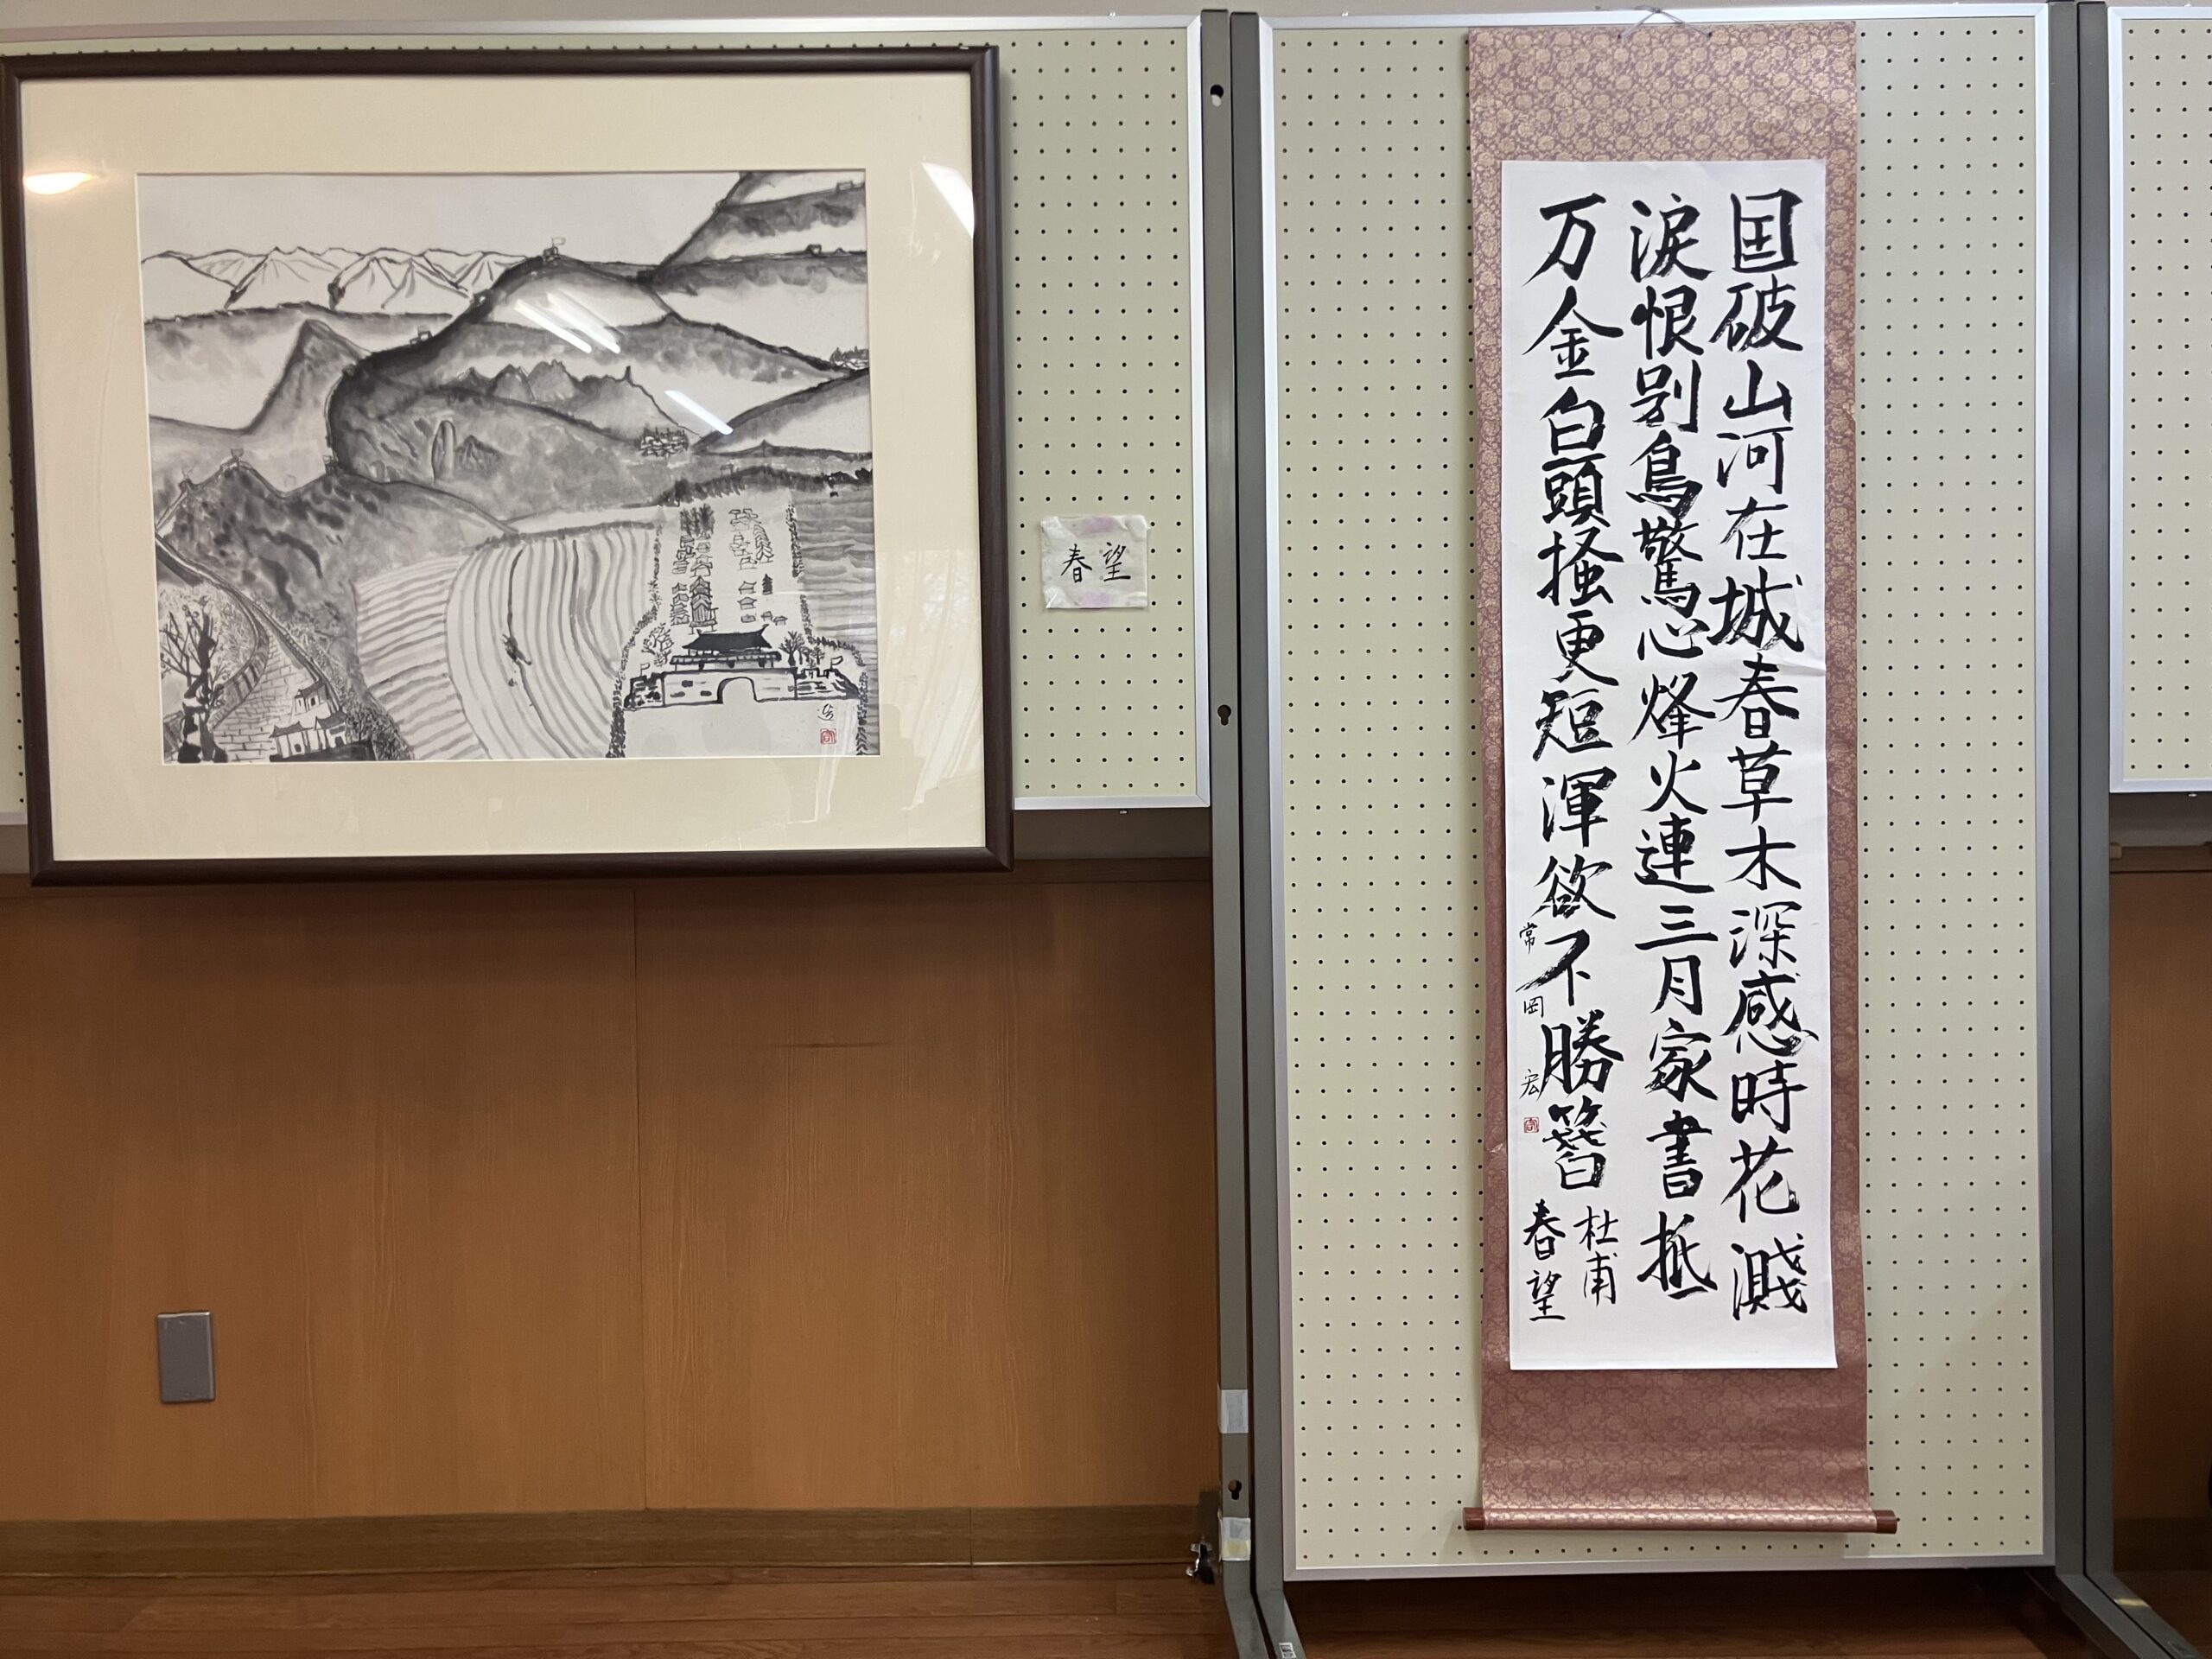 国破山河在城春草木深感時花濺
淚恨別鳥驚心烽火連三月家書抵
万金白頭搔更短渾欲不勝簪
杜甫
春望
常岡 宏
春望